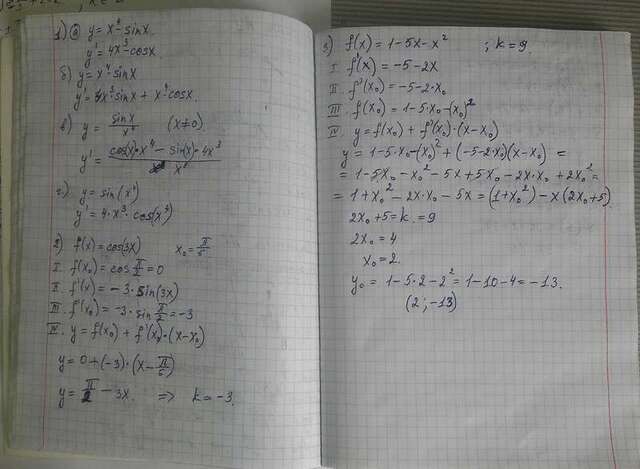 1) а) y = x⁴ - sinx.
y' = 4x³ - cosx.
б) y = x⁴ · sinx
y' = 4x³ · sinx + x⁴ cosx.
в) y = sinx / x⁴ (x≠0)
y' = (cos(x) · x⁴ - sin(x) · 4x³) / x⁸
г) y = sin(x⁴)
y' = 4 · x³ · cos(x⁴)
2) f(x) = cos(3x) x₀ = π/6
I. f(x₀) = cos π/2 = 0
II. f'(x) = -3 · sin(3x)
III. f'(x₀) = -3 · sin π/2 = -3
IV. y = f(x₀) + f'(x₀) · (x - x₀)
y = 0 + (-3) · (x - π/6)
y = π/2 - 3x. => k = -3.
3) f(x) = 1 - 5x - x² ; k = 9.
I. f'(x) = -5 - 2x
II. f'(x₀) = -5 - 2 · x₀
III. f(x₀) = 1 - 5 · x₀ - (x₀)²
IV. y = f(x₀) + f'(x₀) · (x - x₀)
y = 1 - 5 · x₀ - (x₀)² + (-5 - 2x₀)(x - x₀) =
= 1 - 5x₀ - x₀² - 5x + 5x₀ - 2x · x₀ + 2x₀² =
= 1 + x₀² - 2x · x₀ - 5x = (1 + x₀²) - x(2x₀ + 5).
2x₀ + 5 = k = 9
2x₀ = 4
x₀ = 2.
y₀ = 1 - 5 · 2 - 2² = 1 - 10 - 4 = -13.
(2 ; -13)